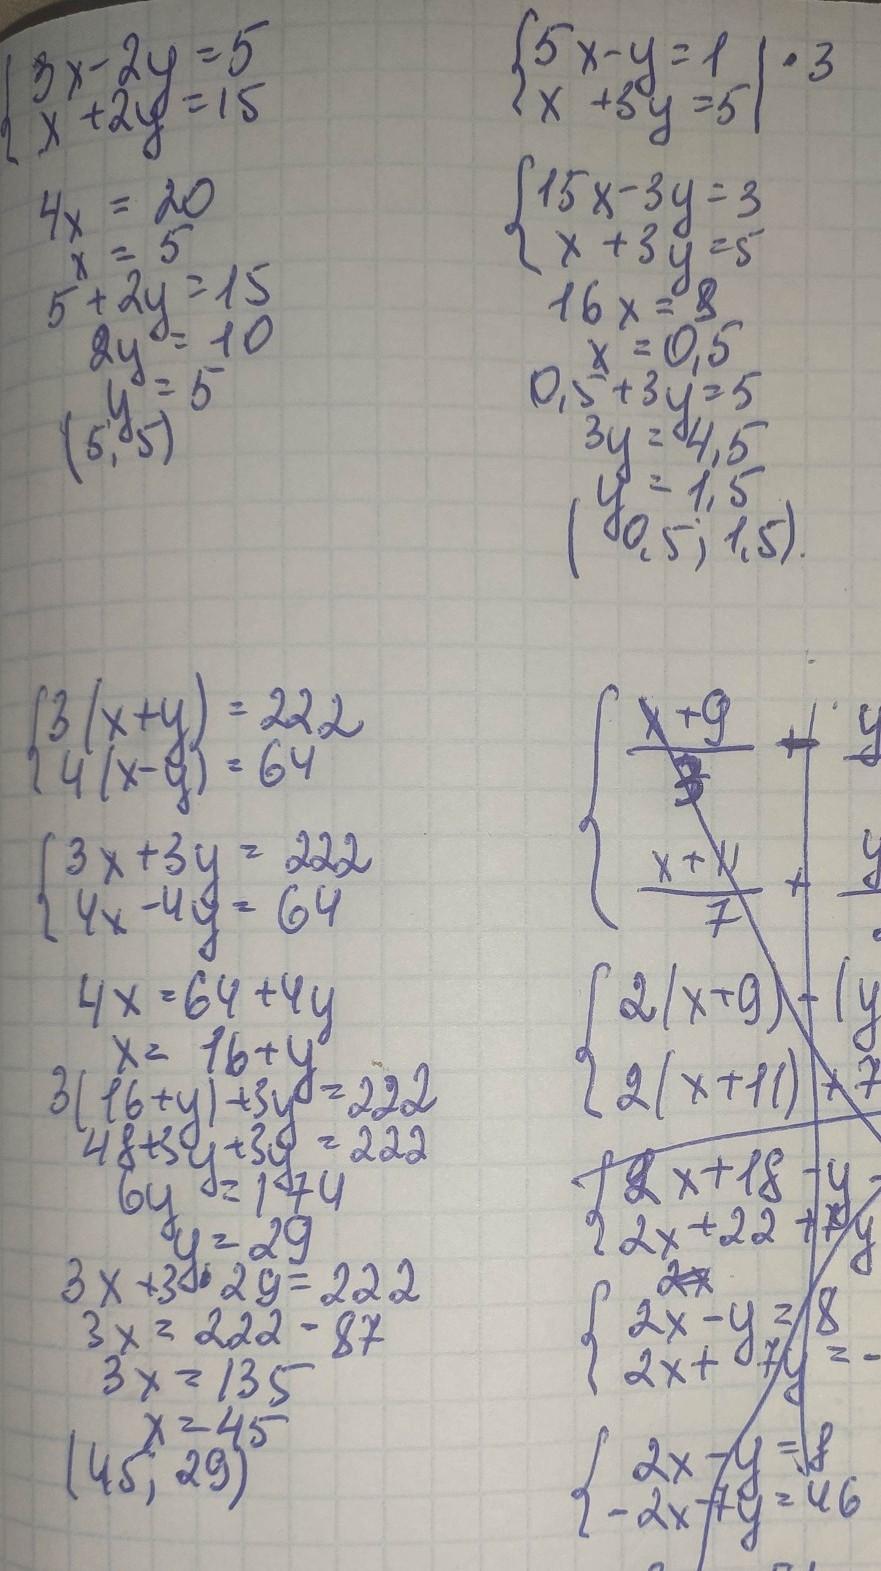 3x-2y=5
x+2y=15
4x = 20
x = 5
5+2y=15
2y = 10
y = 5
(5, 5)
5x-y=1 | · 3
x +3y=5
15x-3y=3
x +3y=5
16x = 8
x = 0,5
0,5+3y=5
3y = 4,5
y = 1,5
(0,5; 1,5).
3(x+y) = 222
4(x-y) = 64
3x+3y = 222
4x-4y = 64
4x = 64+4y
x = 16+y
3(16+y)+3y = 222
48+3y+3y = 222
6y = 174
y = 29
3x+3·29=222
3x = 222-87
3x = 135
x = 45
(45; 29)
x+9 y
x+11
7 + y
2(x+9) - (y
2(x+11) + 7
2x+18-y
2x+22+7y
2x
2x-y = 8
2x+7y = -
2x-y = 8
-2x-7y = 46